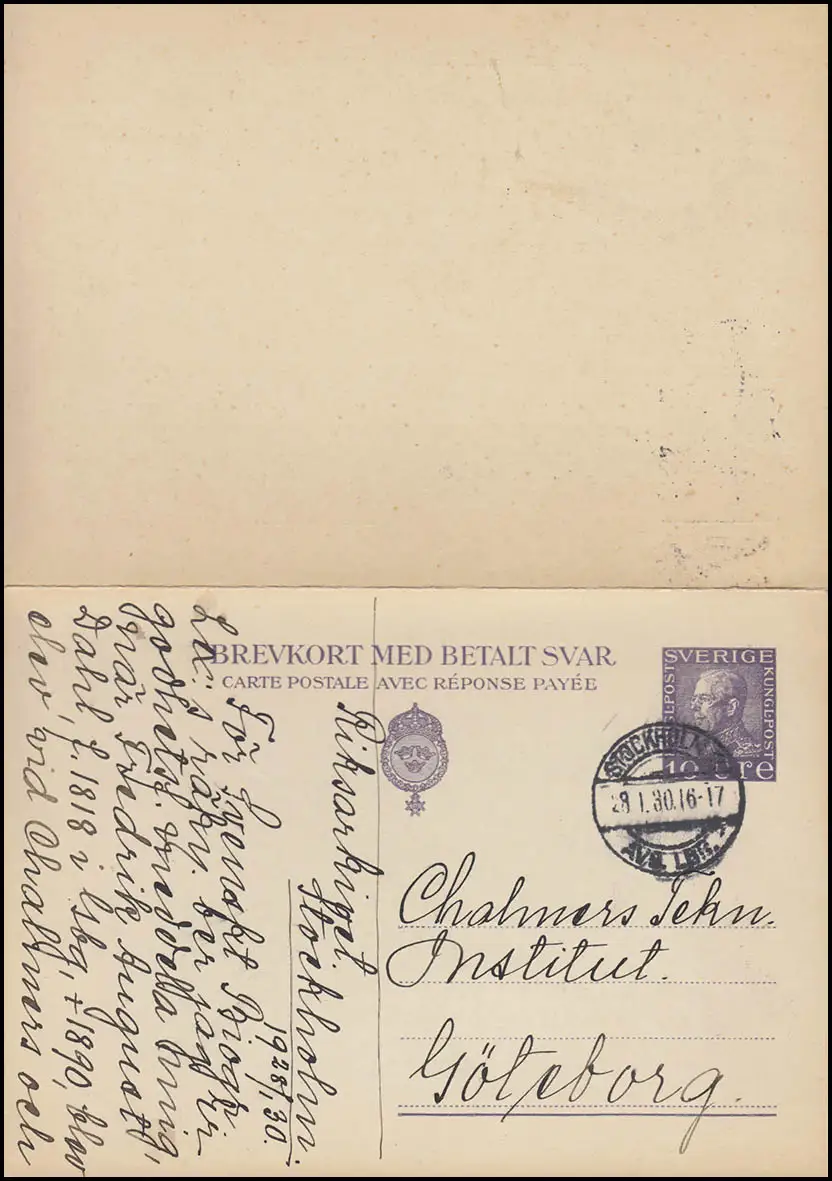 BREVKORT MED BETALT SVAR
CARTE POSTALE AVEC RÉPONSE PAYÉE
SVERIGE
KUNGL.POST
10 ÖRE
STOCKHOLM
28 1.30.16-17
AVG. LBR.
Chalmers Tekn.
Institut.
Göteborg.
Riksarkivet.
Stockholm.
1928/1,30.
För Svenskt Biogr.
Lex:s räkn. ber jag Er
godhetsf. meddela mig,
när Fredrik August
Dahl, f. 1818 i Gsbg, + 1890, blev
elev vid Chalmers och